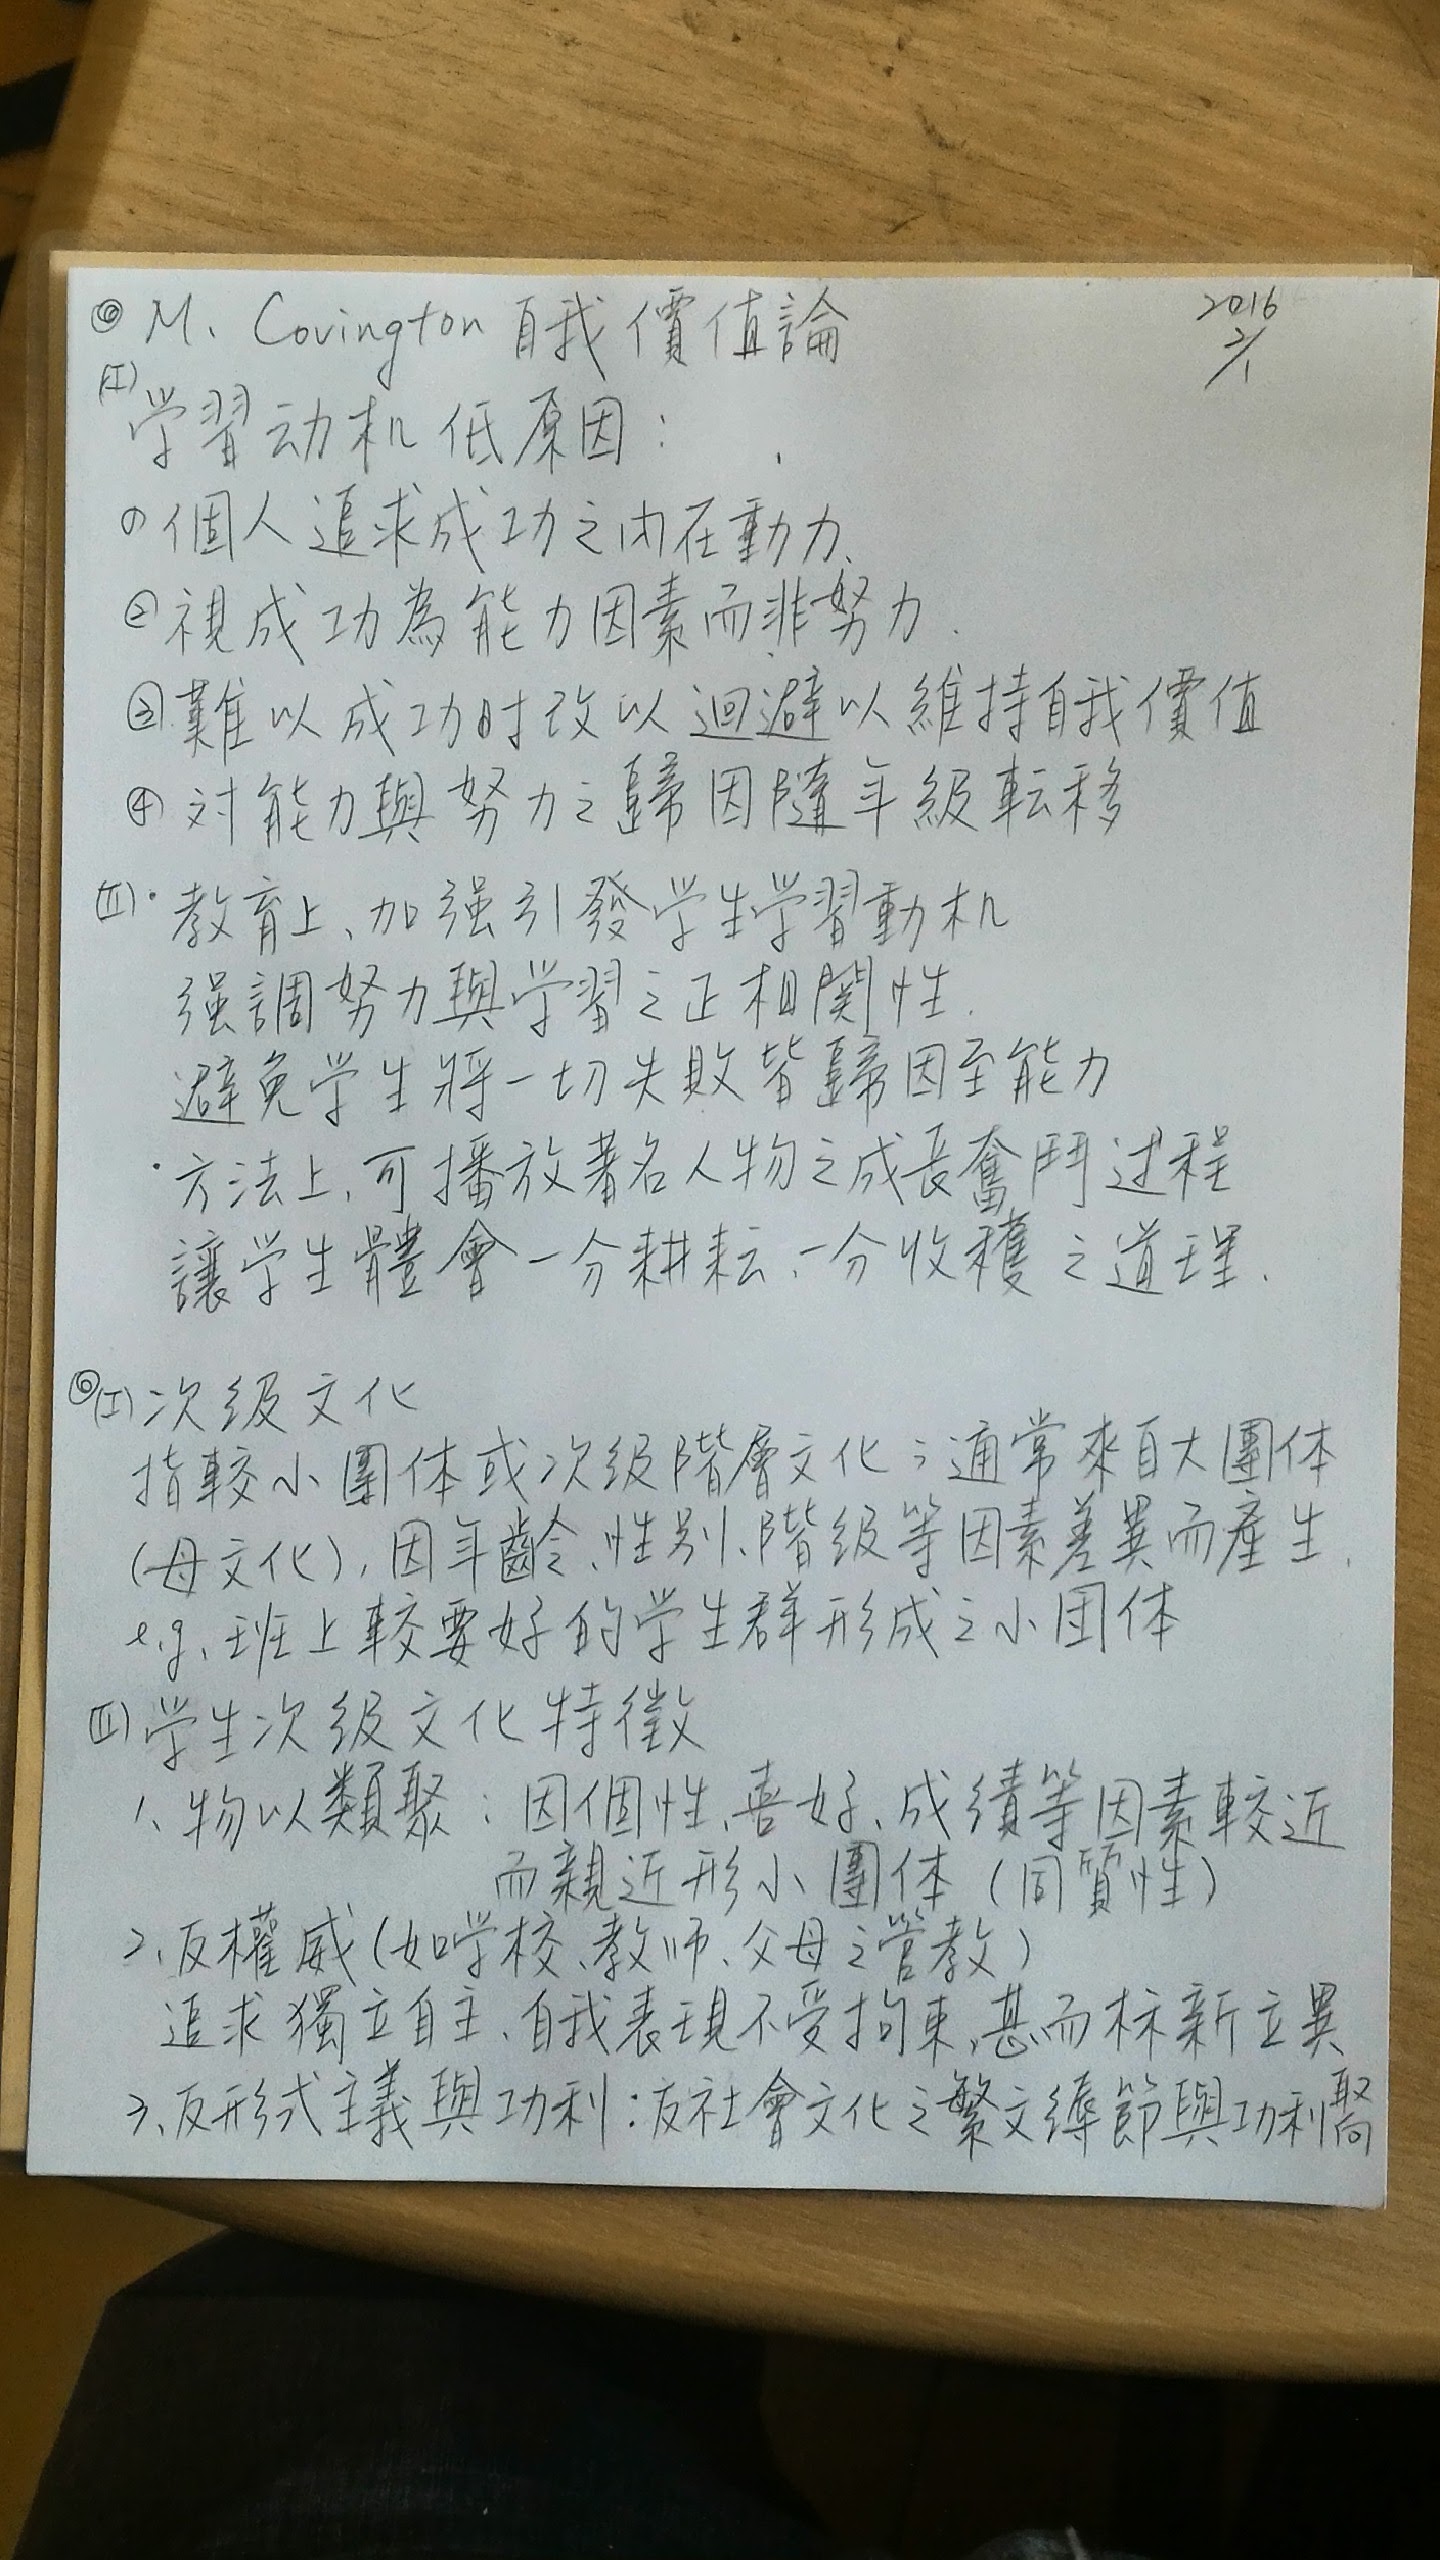 ◎ M. Covington 自我價值論
2016
2/1
(I)
学習动机低原因:
① 個人追求成功之内在動力、
② 視成功為能力因素而非努力.
③ 難以成功时改以迴避以維持自我價值
④ 対能力與努力之歸因隨年級転移
(II)·教育上、加强引發学生学習動机
强調努力與学習之正相関性.
避免学生將一切失敗皆歸因至能力
·方法上,可播放著名人物之成長奮鬥过程
讓学生體會一分耕耘、一分收穫之道理.
◎(I) 次級文化
指較小團体或次級階層文化;通常來自大團体
(母文化),因年齡、性別、階級等因素差異而產生.
e.g.班上較要好的学生群形成之小団体
(II) 学生次級文化特徵
1、物以類聚:因個性、喜好、成績等因素較近
而親近形小團体(同質性)
2、反權威(如学校、教师、父母之管教)
追求獨立自主、自我表現不受拘束,甚而标新立異
3、反形式主義與功利:反社會文化之繁文縟節與功利